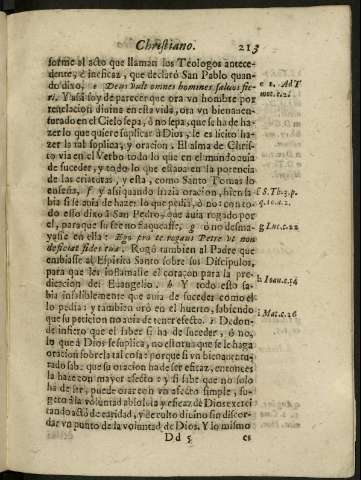 Christiano. 213
forme al acto que llaman los Teologos antece-
dente, è ineficaz, que declarò San Pablo quan-
do dixo, e Deus vult omnes homines salvos fie-
ri. Y assi soy de parecer que ora vn hombre por
reuelacion diuina en esta vida, ora vn bienauen-
turado en el Cielo sepa, ò no sepa, que se ha de ha-
zer lo que quiere suplicar a Dios, le es licito ha-
zer la tal suplica, y oracion. El alma de Chris-
to via en el Verbo todo lo que en el mundo auia
de suceder, y todo lo que estaua en la potencia
de las criaturas, y esta, como Santo Tomas lo
enseña, f y assi quando hizia oracion, bien sa-
bia si se auia de hazer lo que pedia, ò no: con to-
do esso dixo à San Pedro, que auia rogado por
el, para que su fee no flaqueasse, g ò no desma-
yasse en ella: Ego pro te rogaui Petre vt non
deficiat fides tua. Rogò tambien al Padre que
embiasse al Espiritu Santo sobre sus Discipulos,
para que les inflamasse el coraçon para la pre-
dicacion del Euangelio. h Y todo esto sa-
bia infaliblemente que auia de suceder como el
lo pedia: y tambien orò en el huerto, sabiendo
que su peticion no auia de tener efecto. i De don-
de infiero que el saber si ha de suceder, ò no,
lo que à Dios se suplica, no estorua que se le haga
oracion sobre la tal cosa: porque si vn bienauentu-
rado sabe que su oracion ha de ser eficaz, entonces
la haze con mayor afecto: y si sabe que no solo
ha de ser, puede orar con vn afecto simple, su-
geto à la voluntad absoluta y eficaz de Dios exerci-
tando actò de caridad, y de culto diuino sin discor-
dar vn punto de la voluntad de Dios. Y lo mismo
Dd 5 es
e 1. Ad T
mot. c. 2.
f S. Th. 3. p.
q. 10. a. 2.
g Luc. c. 22
h Ioan. c. 14
i Mat. c. 26